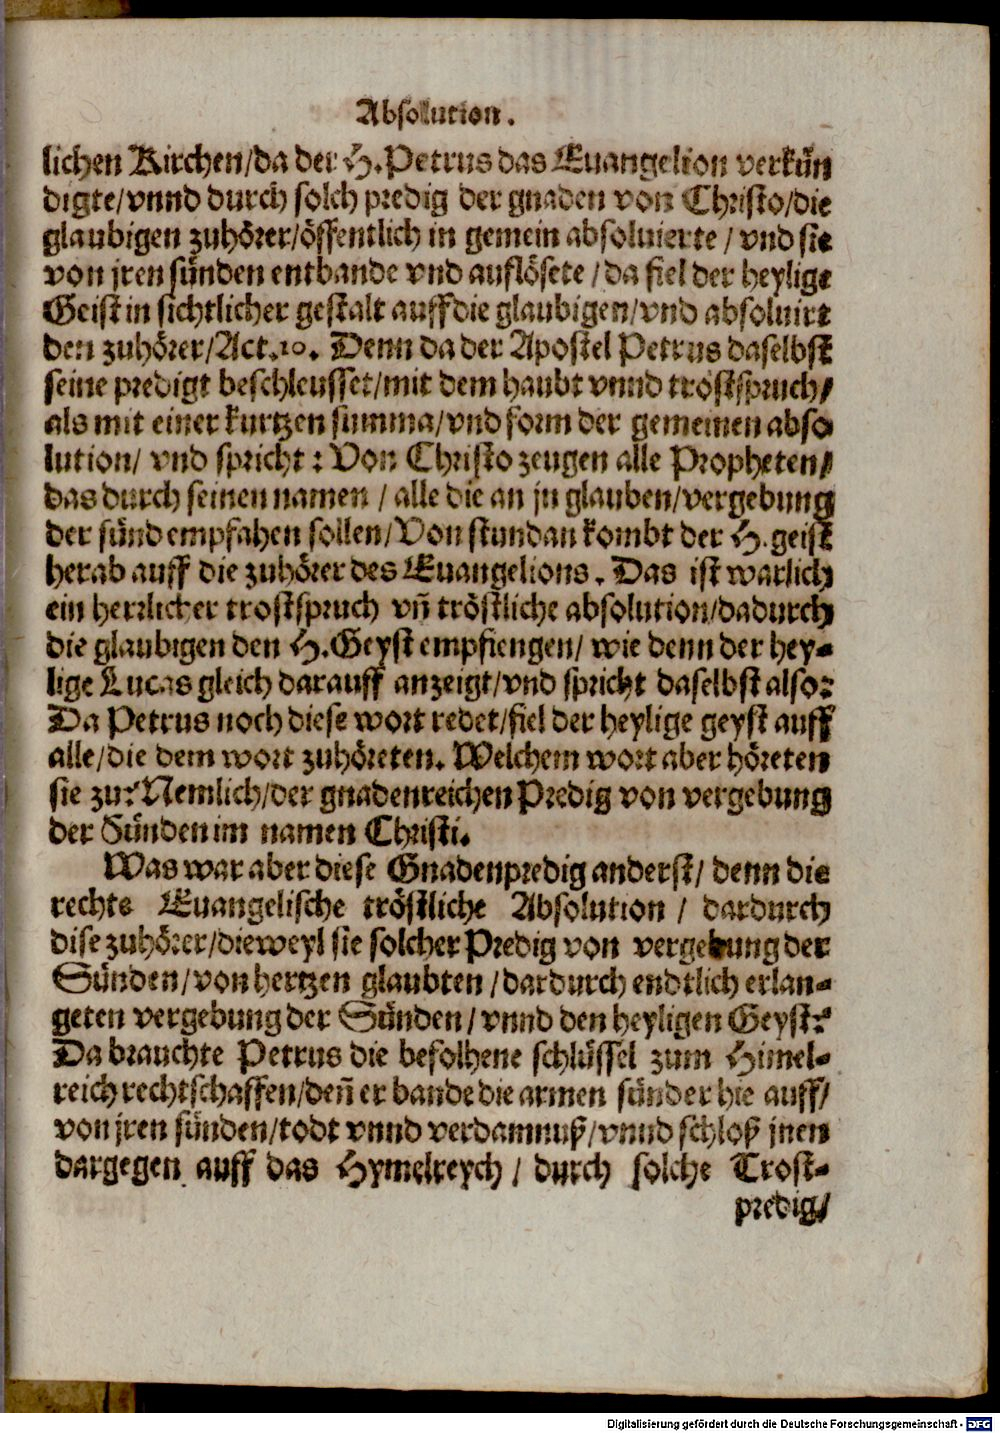 Absolution.
lichen Kirchen/da der H.Petrus das Euangelion verkün
digte/vnnd durch solch predig der gnaden von Christo/die
glaubigen zuhörer/öffentlich in gemein absoluierte / vnd sie
von jren sünden entbande vnd auflösete / da fiel der heylige
Geist in sichtlicher gestalt auff die glaubigen/vnd absoluirt
den zuhörer/Act.10. Denn da der Apostel Petrus daselbst
seine predigt beschleusset/mit dem haubt vnnd trostspruch/
als mit einer kurtzen summa/vnd form der gemeinen abso
lution/ vnd spricht: Von Christo zeugen alle Propheten/
das durch seinen namen / alle die an jn glauben/vergebung
der sünd empfahen sollen/Von stundan kombt der H.geist
herab auff die zuhörer des Euangelions. Das ist warlich
ein herrlicher trostspruch vn̄ tröstliche absolution/dadurch
die glaubigen den H.Geyst empfiengen/ wie denn der hey-
lige Lucas gleich darauff anzeigt/vnd spricht daselbst also:
Da Petrus noch diese wort redet/fiel der heylige geyst auff
alle/die dem wort zuhöreten. Welchem wort aber höreten
sie zu? Nemlich/der gnadenreichen Predig von vergebung
der Sünden im namen Christi.
Was war aber diese Gnadenpredig anderst/ denn die
rechte Euangelische tröstliche Absolution / dardurch
dise zuhörer/dieweyl sie solcher Predig von vergebung der
Sünden/von hertzen glaubten /dardurch endtlich erlan-
geten vergebung der Sünden/ vnnd den heyligen Geyst?
Da brauchte Petrus die befolhene schlüssel zum Himel-
reich rechtschaffen/den̄ er bande die armen sünder hie auff/
von jren sünden/todt vnnd verdamnuß/vnnd schloß jnen
dargegen auff das Hymelreych / durch solche Trost-
predig/
Digitalisierung gefördert durch die Deutsche Forschungsgemeinschaft - DFG